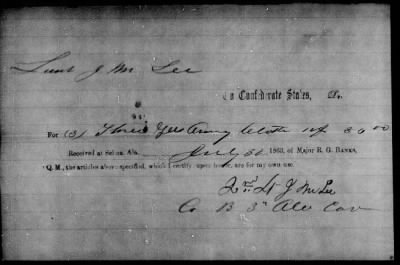 Lieut J M Lee
To Confederate States, Dr.
For (3) Three Yds Army Cloth 3 00
Received at Selma Ala. July 31 1863, of Major R. G. BANKS,
Q. M., the articles above specified, which I certify upon honor, are for my own use.
2nd Lt J M Lee
Co B 3d Ala Cav